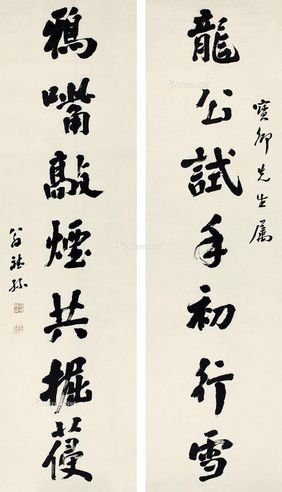 龍公試手初行雪
寶卿先生屬
鴉嘴敲煙共掘葠
翁斌孫